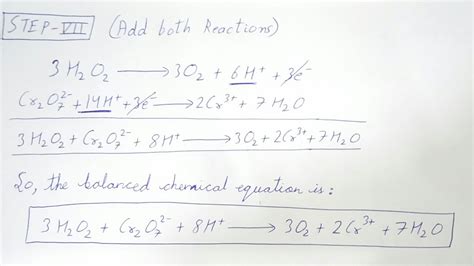 STEP-VII (Add both Reactions)
3H₂O₂ ⟶ 3O₂ + 6H⁺ + 3e⁻
Cr₂O₇²⁻ + 14H⁺ + 3e⁻ ⟶ 2Cr³⁺ + 7H₂O
3H₂O₂ + Cr₂O₇²⁻ + 8H⁺ ⟶ 3O₂ + 2Cr³⁺ + 7H₂O
So, the balanced chemical equation is:
3H₂O₂ + Cr₂O₇²⁻ + 8H⁺ ⟶ 3O₂ + 2Cr³⁺ + 7H₂O